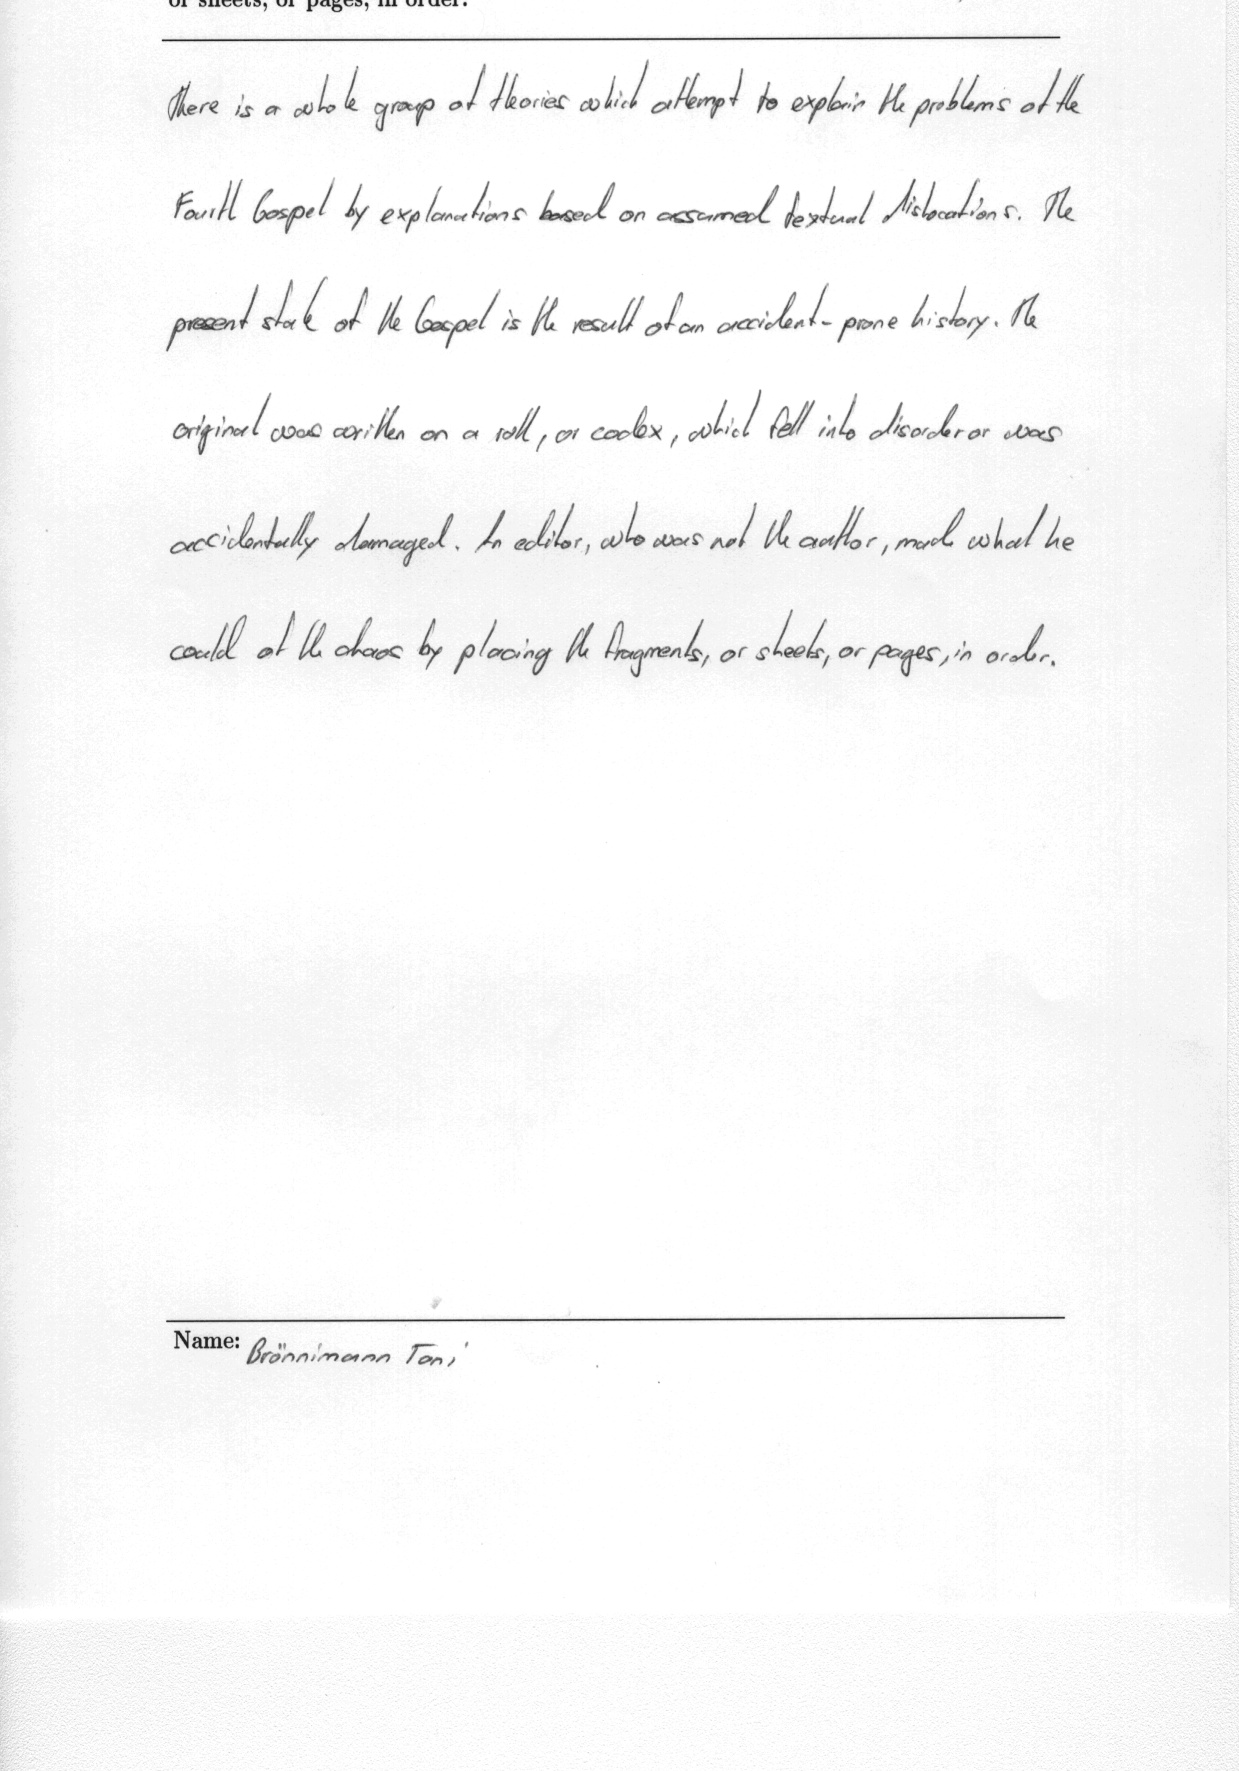 or sheets, or pages, in order.
There is a whole group of theories which attempt to explain the problems of the
Fourth Gospel by explanations based on assumed textual dislocations. The
present state of the Gospel is the result of an accident-prone history. The
original was written on a roll, or codex, which fell into disorder or was
accidentally damaged. An editor, who was not the author, made what he
could of the chaos by placing the fragments, or sheets, or pages, in order.
Name: Brönnimann Toni